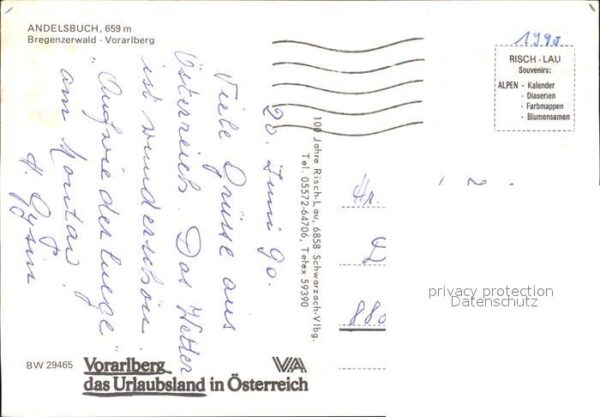 ANDELSBUCH, 659 m
Bregenzerwald · Vorarlberg
1990
RISCH - LAU
Souvenirs:
ALPEN - Kalender
- Diaserien
- Farbmappen
- Blumensamen
20. Juni 90.
Viele Grüsse aus
Österreich. Das Wetter
ist wunderschön.
"Aufwiederluege"
am Montag!
H. Gysin
100 Jahre Risch-Lau, 6858 Schwarzach-Vlbg.
Tel. 05572-64706, Telex 59390
Hr.
880
privacy protection
Datenschutz
BW 29465
Vorarlberg VA
das Urlaubsland in Österreich